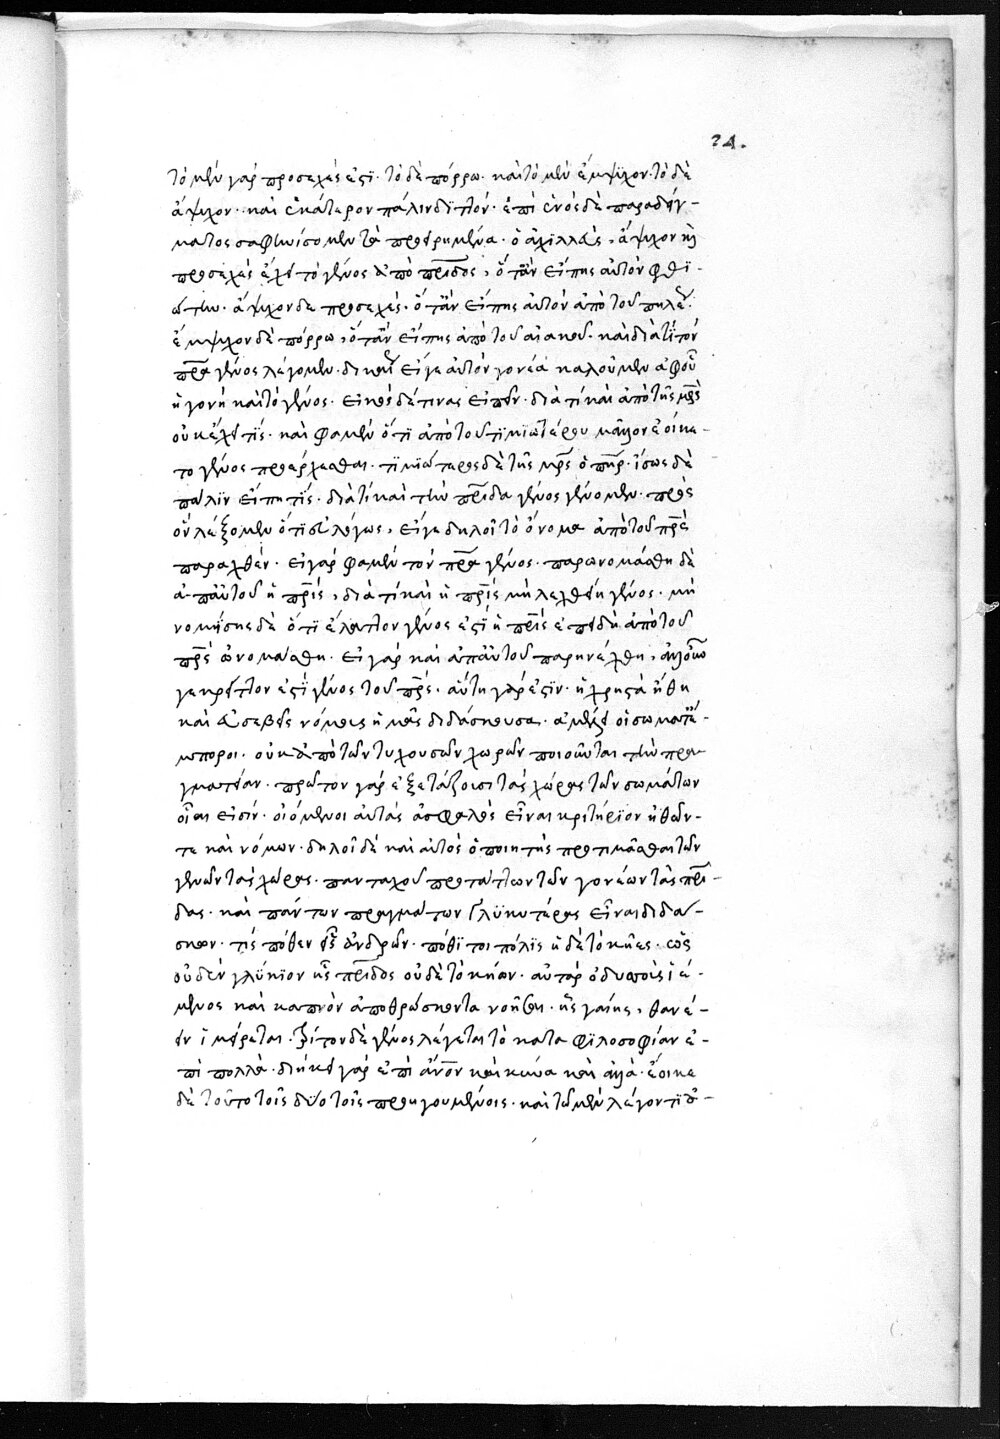 24.
τὸ μὲν γὰρ προσεχὲς ἐστί· τὸ δὲ πόρρω· καὶ τὸ μὲν ἔμψυχον· τὸ δὲ
ἄψυχον· καὶ ἑκάτερον πάλιν διττόν· ἐπὶ ἑνὸς δὲ παραδείγ-
ματος σαφηνίσομεν τὰ προειρημένα· ὁ ἀχιλλεὺς, ἄψυχον καὶ
προσεχὲς ἔχει τὸ γένος ἀπὸ πρίδος, ὅταν εἴπης αὐτὸν φθϊ-
ώτην· ἔμψυχον δὲ προσεχὲς· ὅταν εἴπης αὐτὸν ἀπὸ τοῦ πηλέως·
ἔμψυχον δὲ πόρρω, ὅταν εἴπης ἀπὸ τοῦ αἰακοῦ· καὶ διὰ τί τὸν
πρα γένος λέγομεν· δικαίως εἴγε αὐτὸν γονέα καλοῦμεν ἀφοῦ
ἡ γονὴ καὶ τὸ γένος· εἰκὸς δέ τινας εἰπεῖν· διὰ τί καὶ ἀπὸ τῆς μρς
οὐκ ἔχει τίς· καὶ φαμὲν ὅτι ἀπὸ τοῦ τιμιωτέρου μᾶλλον ἐοίκε-
το γένος προέρχεσθαι· τιμιώτερος δὲ τῆς μρς ὁ πηρ· ἴσως δὲ
παλιν εἴπη τίς· διὰ τί καὶ τὴν πρίδα γένος λέγομεν· πρὸς
ὃν λέξομεν ὅτι εὐλόγως, εἴγε δηλοῖ τὸ ὄνομα ἀπὸ τοῦ πρς
παραχθέν· εἰ γὰρ φαμὲν τὸν πρα γένος· παρωνομάσθη δὲ
ἀπ αὐτοῦ ἡ πρίς, διὰ τί καὶ ἡ πρὶς μὴ λεχθείη γένος· μὴ
νομίσης δὲ ὅτι ἔλαττον γένος ἐστὶ ἡ πρὶς ἐπειδὴ ἀπὸ τοῦ
πρς ὠνομάσθη· εἰ γὰρ καὶ ἀπ αὐτοῦ παρηνέχθη, ἀλλ οὖν
γε κρεῖττον ἐστὶ γένος τοῦ πρς· αὕτη γάρ ἐστιν· ἡ χρηστὰ ἤθη
καὶ εὐσεβεῖς νόμους ἡμᾶς διδάσκουσα· ἀμέλει οἱ σωματέ-
μποροι· οὐκ ἀπὸ τῶν τυχουσῶν χωρῶν ποιοῦνται τὴν πρα
γματείαν· πρῶτον γὰρ ἐξετάζουσι τὰς χώρας τῶν σωμάτων
οἷαι εἰσίν· οἰόμενοι αὐτὰς ἀσφαλὲς εἶναι κριτήριον ἠθῶν-
τε καὶ νόμων· δηλοῖ δὲ καὶ αὐτὸς ὁ ποιητὴς προτιμᾶσθαι τῶν
γενῶν τὰς χώρας· πανταχοῦ προτάττων τῶν γονέων τὰς πρί-
δας· καὶ πάντων πραγμάτων γλυκυτέρας εἶναι διδά-
σκων· τίς πόθεν εἶς ἀνδρῶν· πόθι τοι πόλις ἠδὲ τοκῆες· ὡς
οὐδὲν γλύκιον ἧς πρίδος οὐδὲ τοκήων· αὐτὰρ ὀδυσσεὺς ἱέ-
μενος καὶ καπνὸν ἀποθρώσκοντα νοῆσαι· ἧς γαίης, θανέ-
ειν ἱμείρεται· τρίτον δὲ γένος λέγεται τὸ κατα φιλοσοφίαν ἐ-
πὶ πολλὰ· διήκει γὰρ ἐπὶ ἄνον καὶ κύνα καὶ ἄλλα· ἔοικε
δὲ τοῦτο τοῖς δύο τοῖς προηγουμένοις· καὶ τῶ μὲν λέγοντι ο-